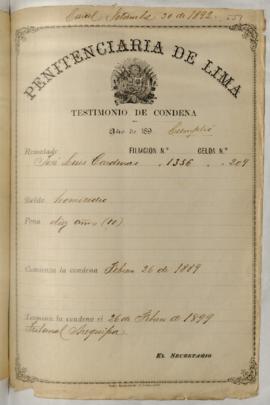 Setiembre 30 de 1892
PENITENCIARIA DE LIMA
TESTIMONIO DE CONDENA
Año de 189 Cumplió
Rematado FILIACION N.º CELDA N.º
José Luis Cardenas 1336 209
Delito homicidio
Pena diez años (10)
Comienza la condena Febrero 26 de 1889
Termina la condena el 26 de Febro de 1899
Tribunal Arequipa
EL SECRETARIO